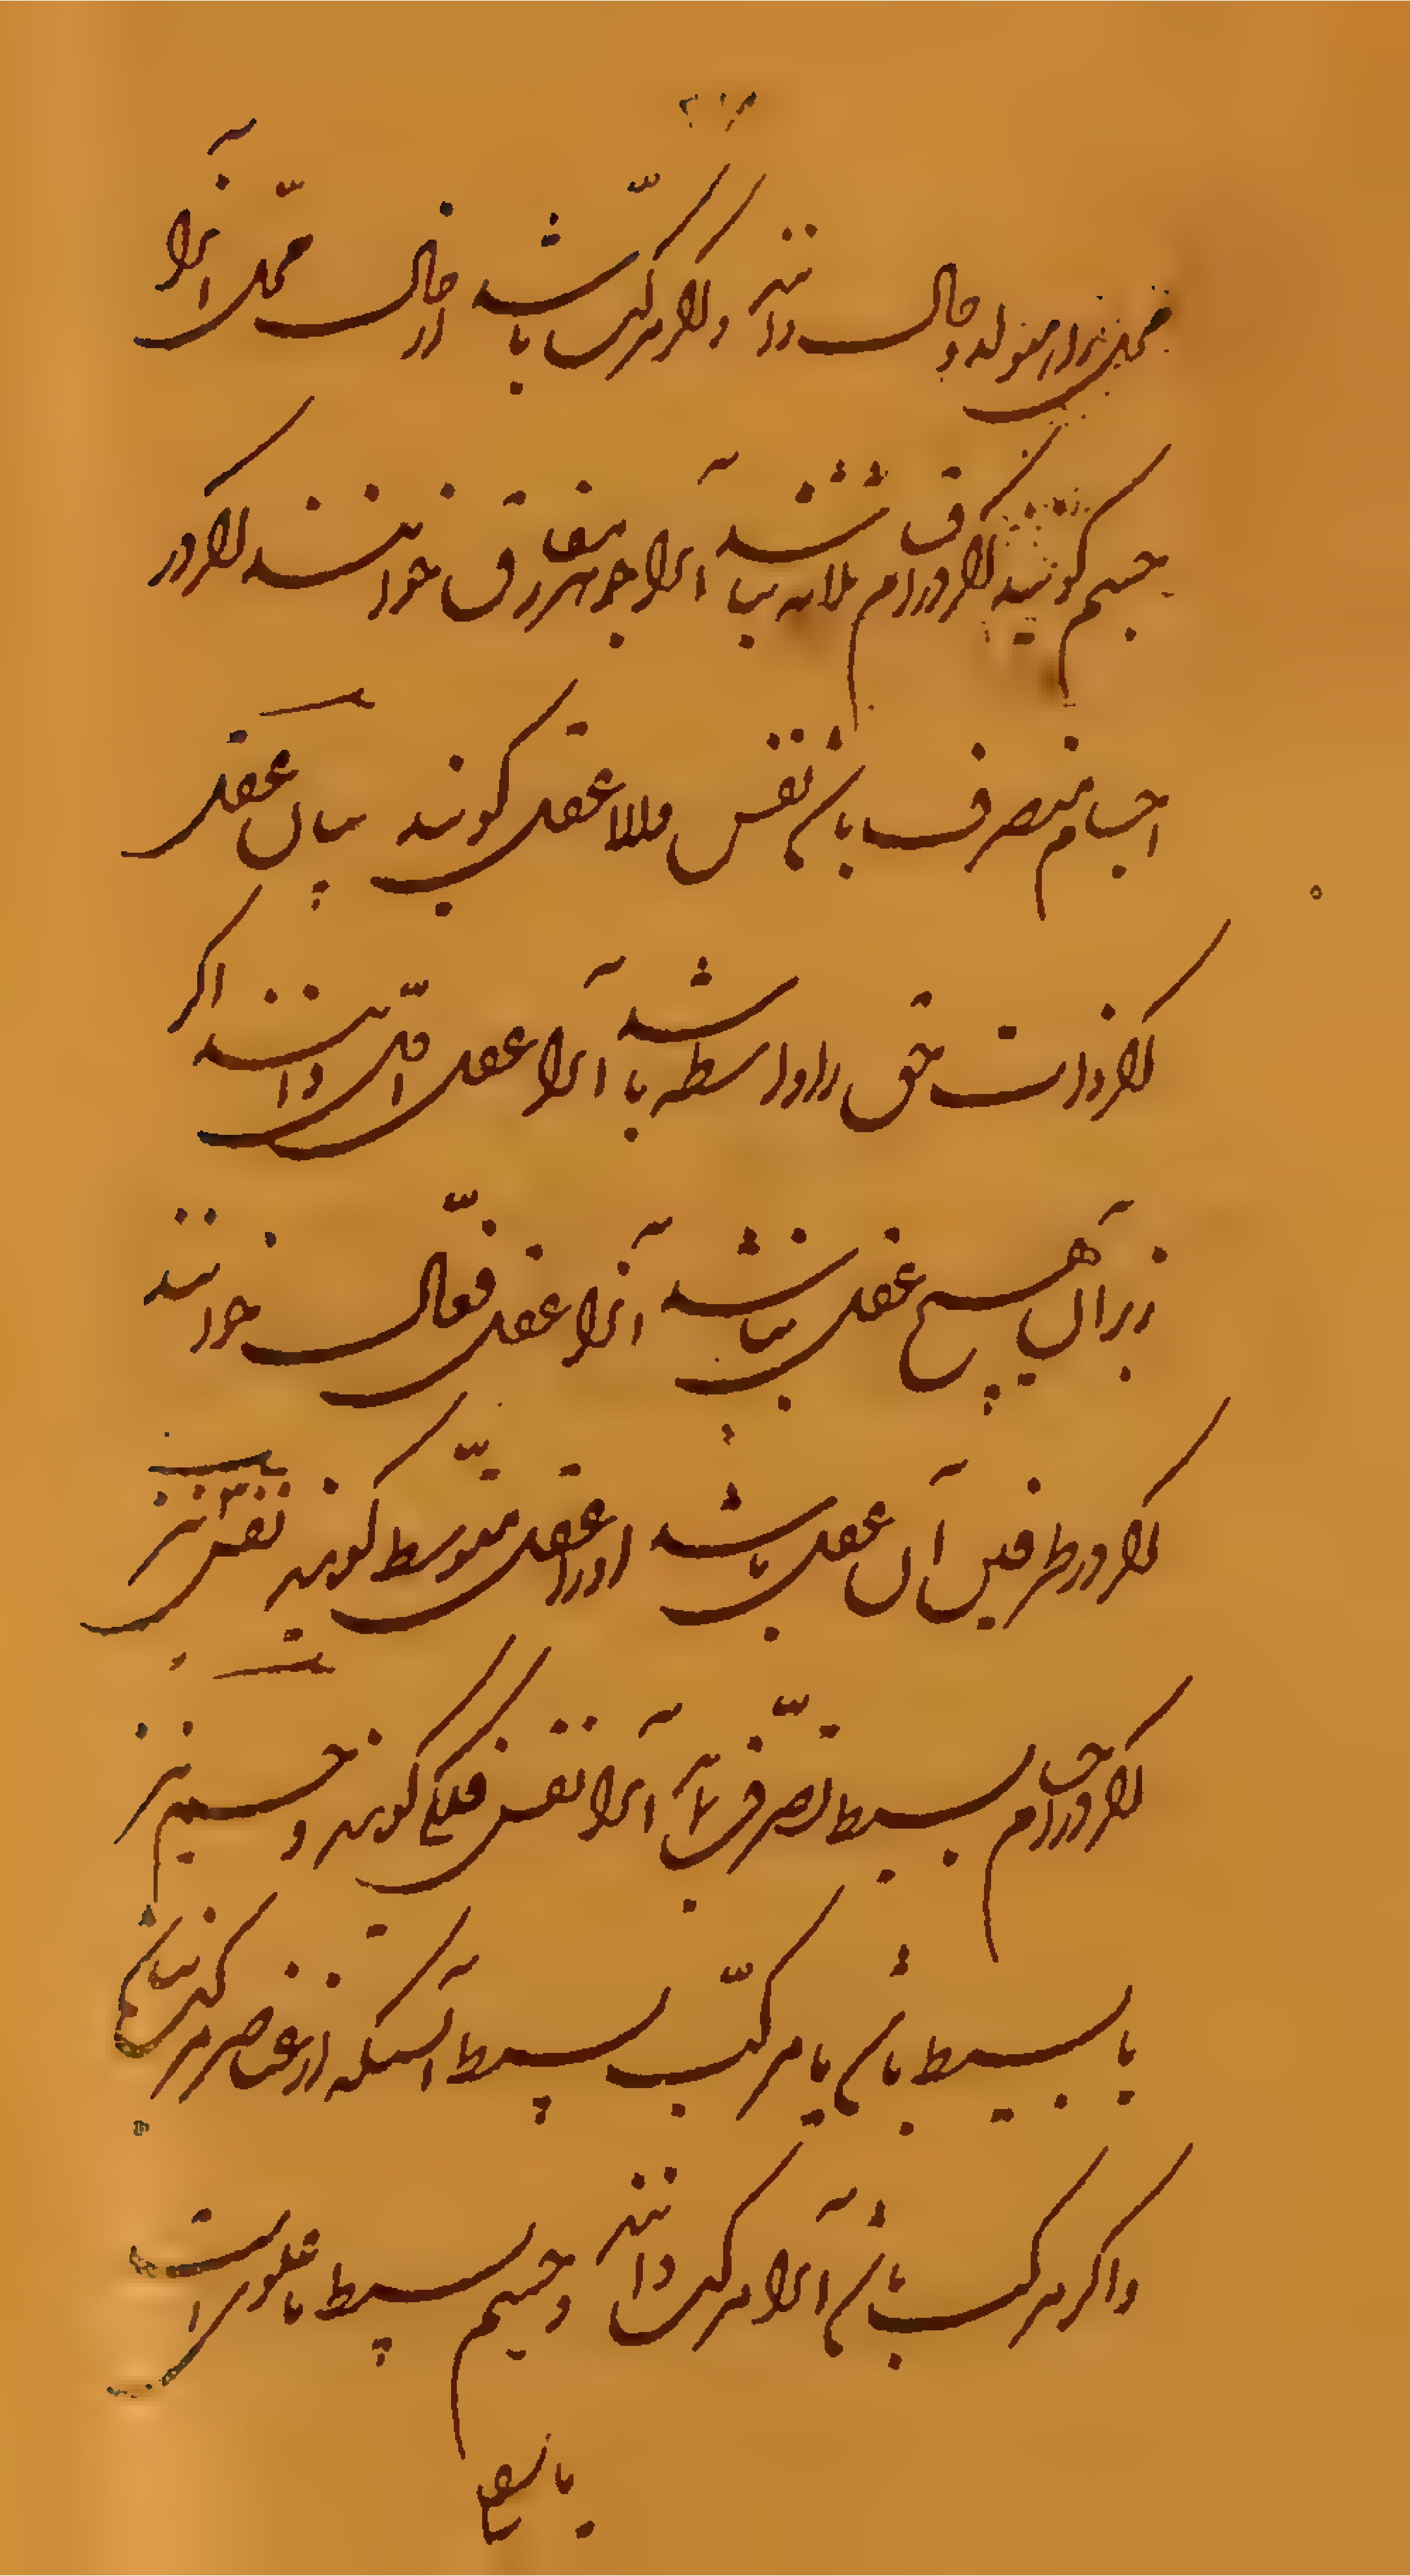 محل را هیولی و حال را صورت دانند و اگر مرکب باشد از حال و محل آنرا
جسم گویند و اگر در اجسام ملابس نباشد آنرا جوهر مفارق خوانند اگر در
اجسام متصرف باشد نفس والا عقل گویند بیان عقل
اگر ذات حق را واسطه باشد آنرا عقل اول دانند اگر
زیر آن هیچ عقل نباشد آنرا عقل فعال خوانند
اگر در طرفین آن عقل باشد او را عقل متوسط گویند نفس نیز
اگر در اجسام بسیط تصرف نماید آنرا نفس فلکی گویند و جسم نیز
یا بسیط باشد یا مرکب بسیط آنستکه از عناصر مرکب نباشد
و اگر مرکب باشد آنرا مرکب دانند و جسم بسیط یا علویست
یا سفلی